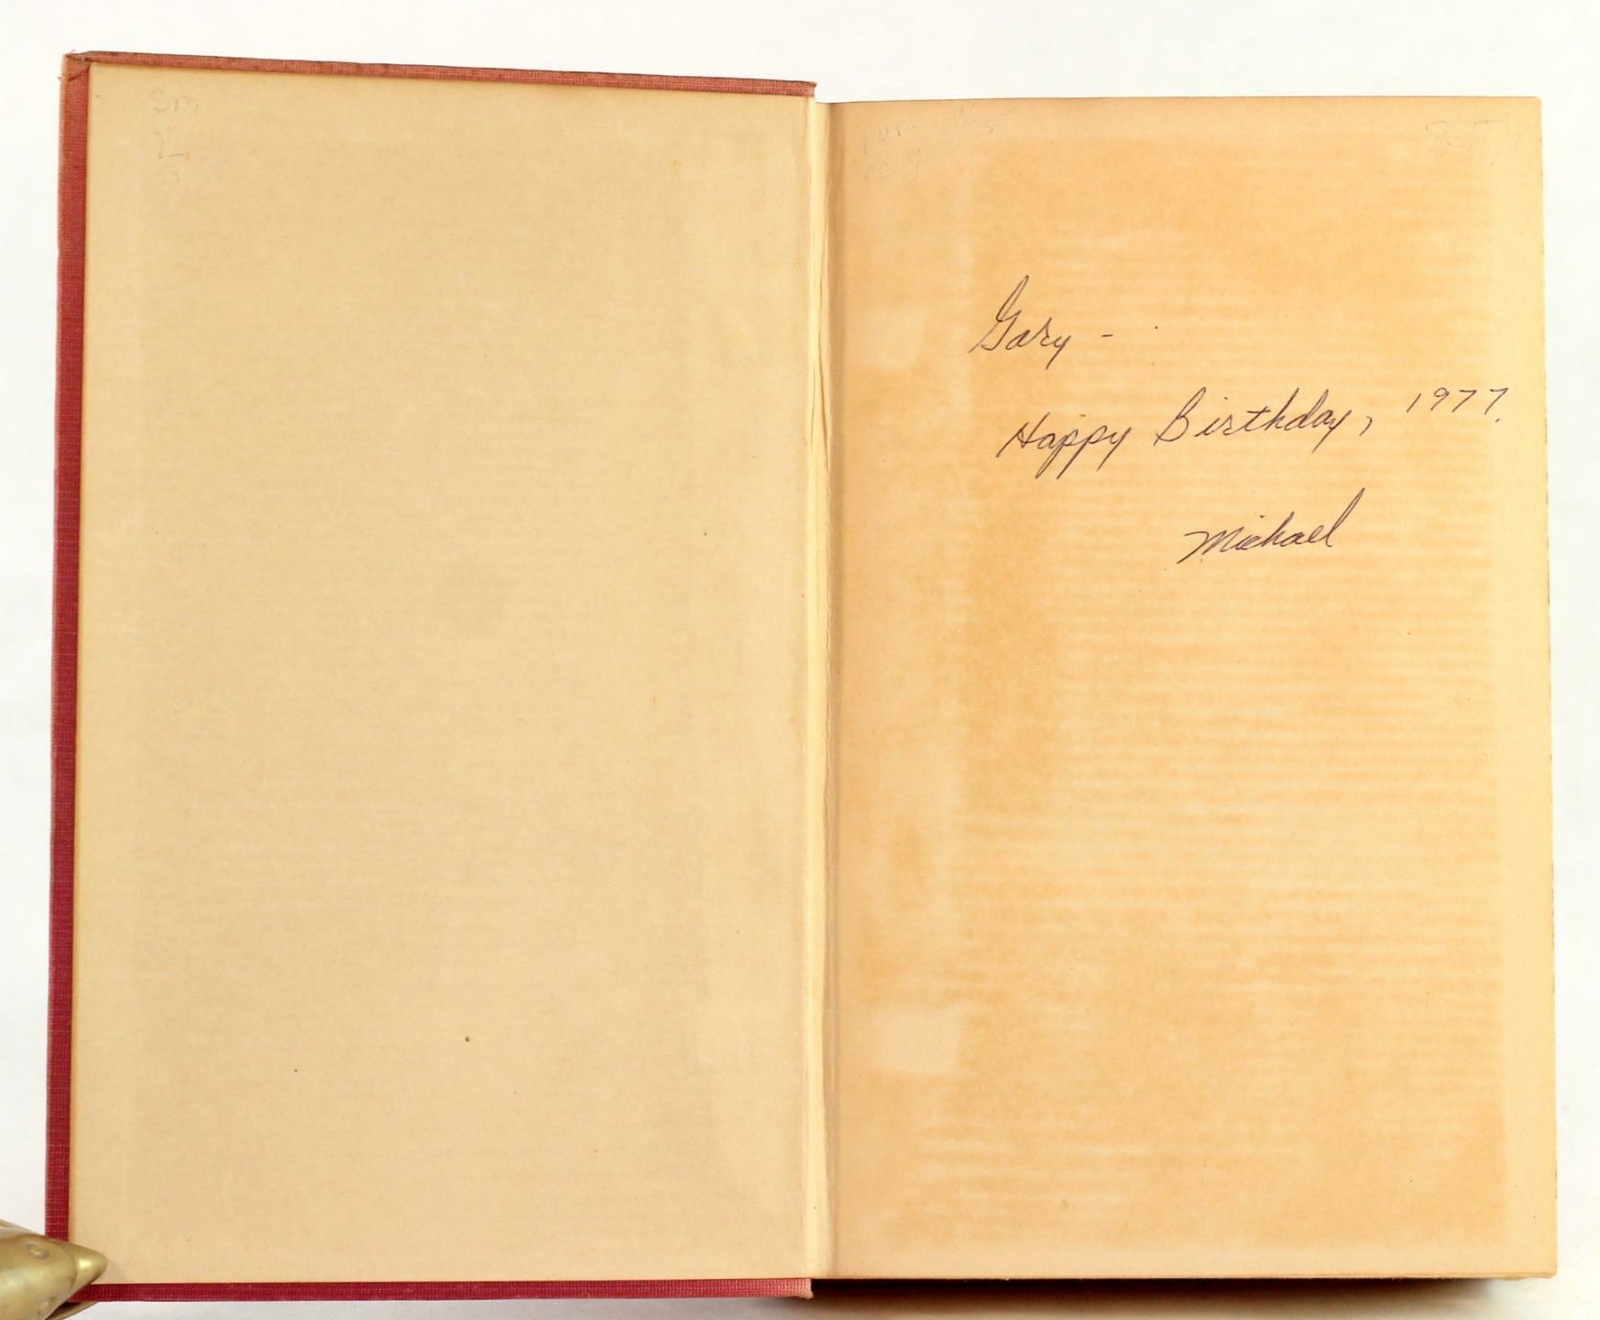 Gary -
Happy Birthday, 1977.
Michael